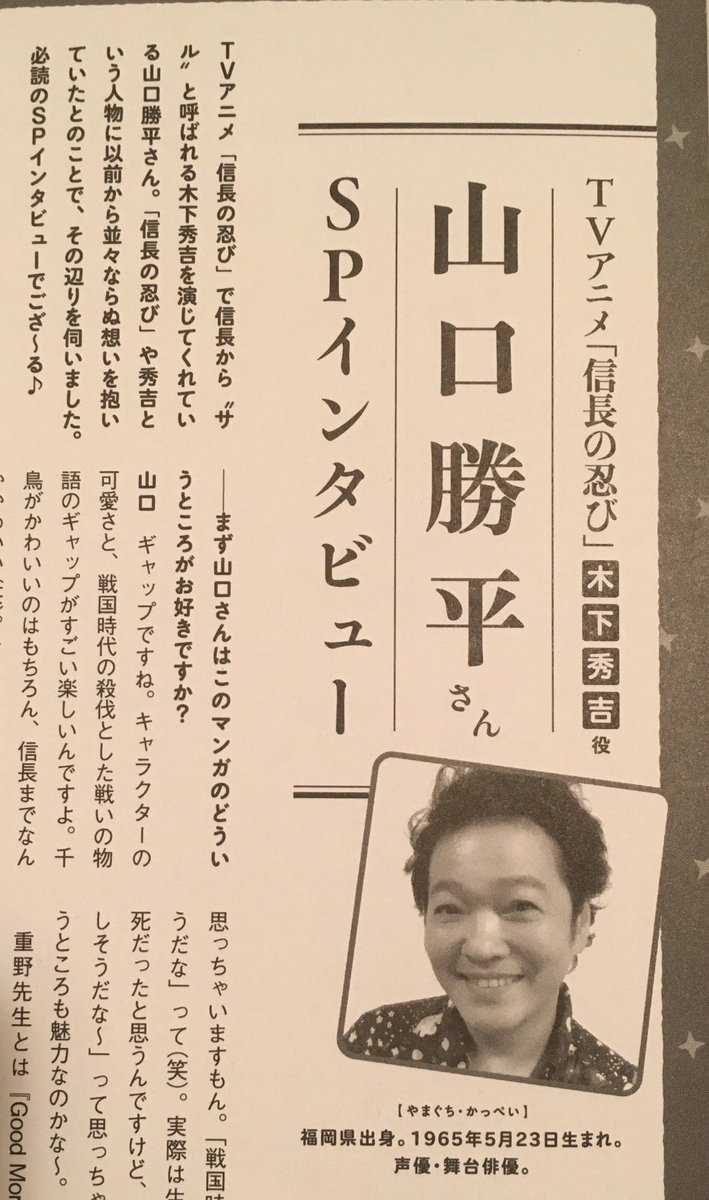 TVアニメ「信長の忍び」木下秀吉役
山口勝平さん
SPインタビュー
【やまぐち・かっぺい】
福岡県出身。1965年5月23日生まれ。
声優・舞台俳優。
TVアニメ「信長の忍び」で信長から〝サ
ル〟と呼ばれる木下秀吉を演じてくれてい
る山口勝平さん。「信長の忍び」や秀吉と
いう人物に以前から並々ならぬ想いを抱い
ていたとのことで、その辺りを伺いました。
必読のSPインタビューでござ〜る♪
――まず山口さんはこのマンガのどうい
うところがお好きですか？
山口　ギャップですね。キャラクターの
可愛さと、戦国時代の殺伐とした戦いの物
語のギャップがすごい楽しいんですよ。千
鳥がかわいいのはもちろん、信長までなん
思っちゃいますもん。「戦国時
うだな」って（笑）。実際は生
死だったと思うんですけど、
しそうだな〜」って思っちゃ
うところも魅力なのかな〜。
重野先生とは『Good Mor